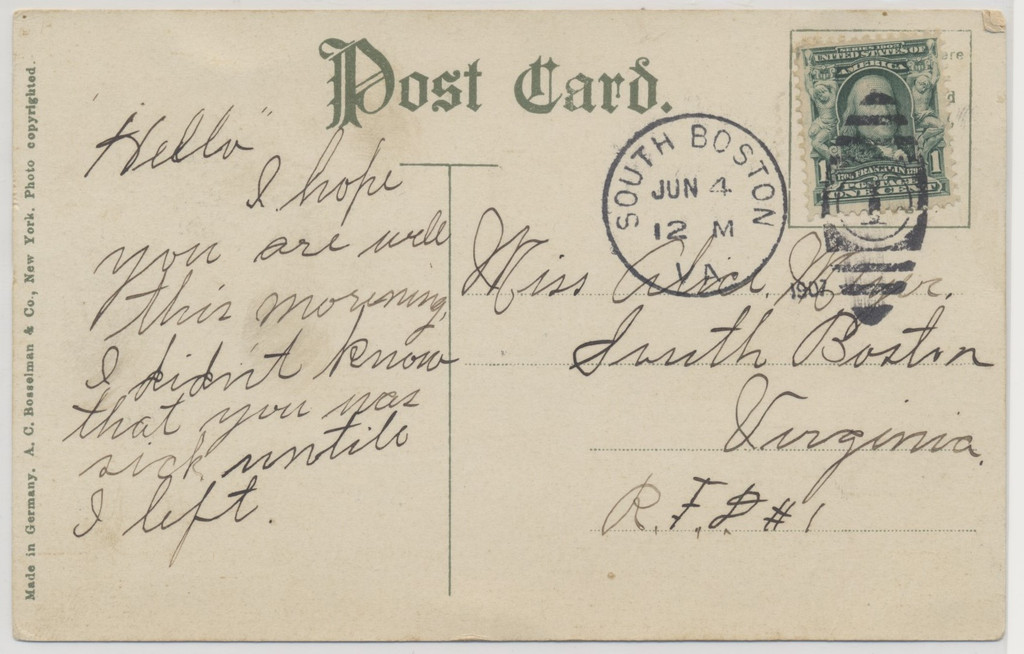 Post Card.
SERIES 1902
UNITED STATES OF
AMERICA
1 FRANKLIN 1
POSTAGE
ONE CENT
SOUTH BOSTON
JUN 4
12 M
VA.
1907
1
"Hello"
I hope
you are well
this morening,
I didn't know
that you was
sick untile
I left.
Miss
South Boston
Virginia.
R.F.D #1
Made in Germany. A. C. Bosselman & Co., New York. Photo copyrighted.